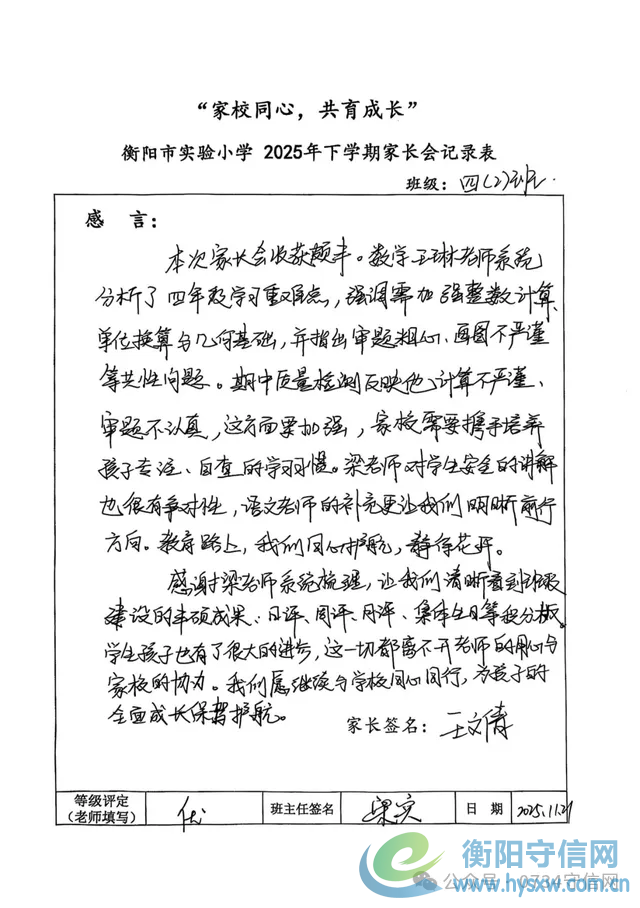 “家校同心，共育成长”
衡阳市实验小学 2025年下学期家长会记录表
班级：四(2)班.
感 言：
本次家长会收获颇丰。数学王琳老师系统
分析了四年级学习重难点，强调需加强整数计算、
单位换算与几何基础，并指出审题粗心、画图不严谨
等共性问题。期中质量检测反映他计算不严谨、
审题不认真，这方面要加强，家校需要携手培养
孩子专注、自查的学习习惯。梁老师对学生安全的讲解
也很有争对性，语文老师的补充更让我们明晰前行
方向。教育路上，我们同心护航，静待花开。
感谢梁老师系统梳理，让我们清晰看到班级
建设的丰硕成果、日评、周评、月评、集体生日等积分板。
学生孩子也有了很大的进步，这一切都离不开老师的用心与
家校的协力。我们愿继续与学校同心同行，为孩子的
全面成长保驾护航。
家长签名：王文倩
等级评定
（老师填写）
优
班主任签名
梁实
日 期
2025.11.21
衡阳守信网
公众号：0734守信网
www.hysxw.com.cn